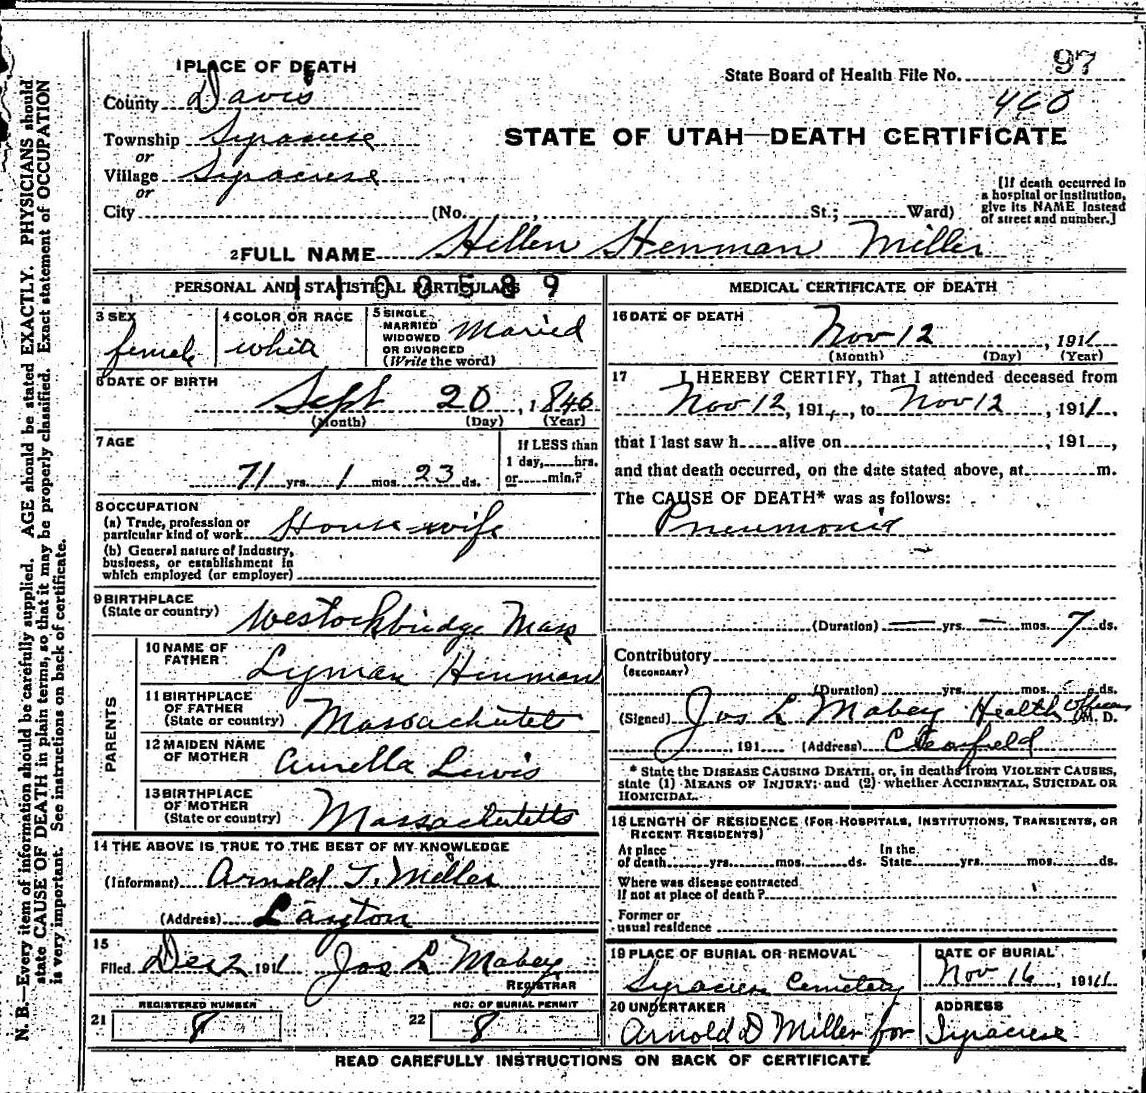 N. B.—Every item of information should be carefully supplied. AGE should be stated EXACTLY. PHYSICIANS should
state CAUSE OF DEATH in plain terms, so that it may be properly classified. Exact statement of OCCUPATION
is very important. See instructions on back of certificate.
1 PLACE OF DEATH
County Davis
Township Syracuse
or
Village Syracuse
or
City (No. , St.; Ward)
State Board of Health File No. 97
460
STATE OF UTAH—DEATH CERTIFICATE
[If death occurred in
a hospital or institution,
give its NAME instead
of street and number.]
2 FULL NAME Hellen Henman Miller
PERSONAL AND STATISTICAL PARTICULARS
1100589
3 SEX
female
4 COLOR OR RACE
white
5 SINGLE
MARRIED
WIDOWED
OR DIVORCED
(Write the word)
Maried
6 DATE OF BIRTH
Sept 20, 1840
(Month) (Day) (Year)
7 AGE
71 yrs. 1 mos. 23 ds.
If LESS than
1 day, hrs.
or min.?
8 OCCUPATION
(a) Trade, profession or
particular kind of work House wife
(b) General nature of Industry,
business, or establishment in
which employed (or employer)
9 BIRTHPLACE
(State or country) Westockbridge Mass
PARENTS
10 NAME OF
FATHER Lyman Hinman
11 BIRTHPLACE
OF FATHER
(State or country) Massachutets
12 MAIDEN NAME
OF MOTHER Aurella Lewis
13 BIRTHPLACE
OF MOTHER
(State or country) Massachutetts
14 THE ABOVE IS TRUE TO THE BEST OF MY KNOWLEDGE
(Informant) Arnold T. Miller
(Address) Layton
15
Filed Dec 2 1911 Jos L Mabey
REGISTRAR
REGISTERED NUMBER
21 8
NO. OF BURIAL PERMIT
22 8
MEDICAL CERTIFICATE OF DEATH
16 DATE OF DEATH
Nov 12, 1911
(Month) (Day) (Year)
17 I HEREBY CERTIFY, That I attended deceased from
Nov 12, 191 , to Nov 12, 1911,
that I last saw h alive on , 191 ,
and that death occurred, on the date stated above, at m.
The CAUSE OF DEATH* was as follows:
Pneumonia
(Duration) — yrs. — mos. 7 ds.
Contributory
(SECONDARY)
(Duration) yrs. mos. ds.
(Signed) Jos L Mabey Health Officer M. D.
, 191 (Address) Clearfield
* State the DISEASE CAUSING DEATH, or, in deaths from VIOLENT CAUSES,
state (1) MEANS OF INJURY; and (2) whether ACCIDENTAL, SUICIDAL OR
HOMICIDAL.
18 LENGTH OF RESIDENCE (FOR HOSPITALS, INSTITUTIONS, TRANSIENTS, OR
RECENT RESIDENTS)
At place
of death yrs. mos. ds.
In the
State yrs. mos. ds.
Where was disease contracted
if not at place of death?
Former or
usual residence
19 PLACE OF BURIAL OR REMOVAL
Syracuse Cemetery
DATE OF BURIAL
Nov 16, 1911
20 UNDERTAKER
Arnold D Miller for
ADDRESS
Syracuse
READ CAREFULLY INSTRUCTIONS ON BACK OF CERTIFICATE